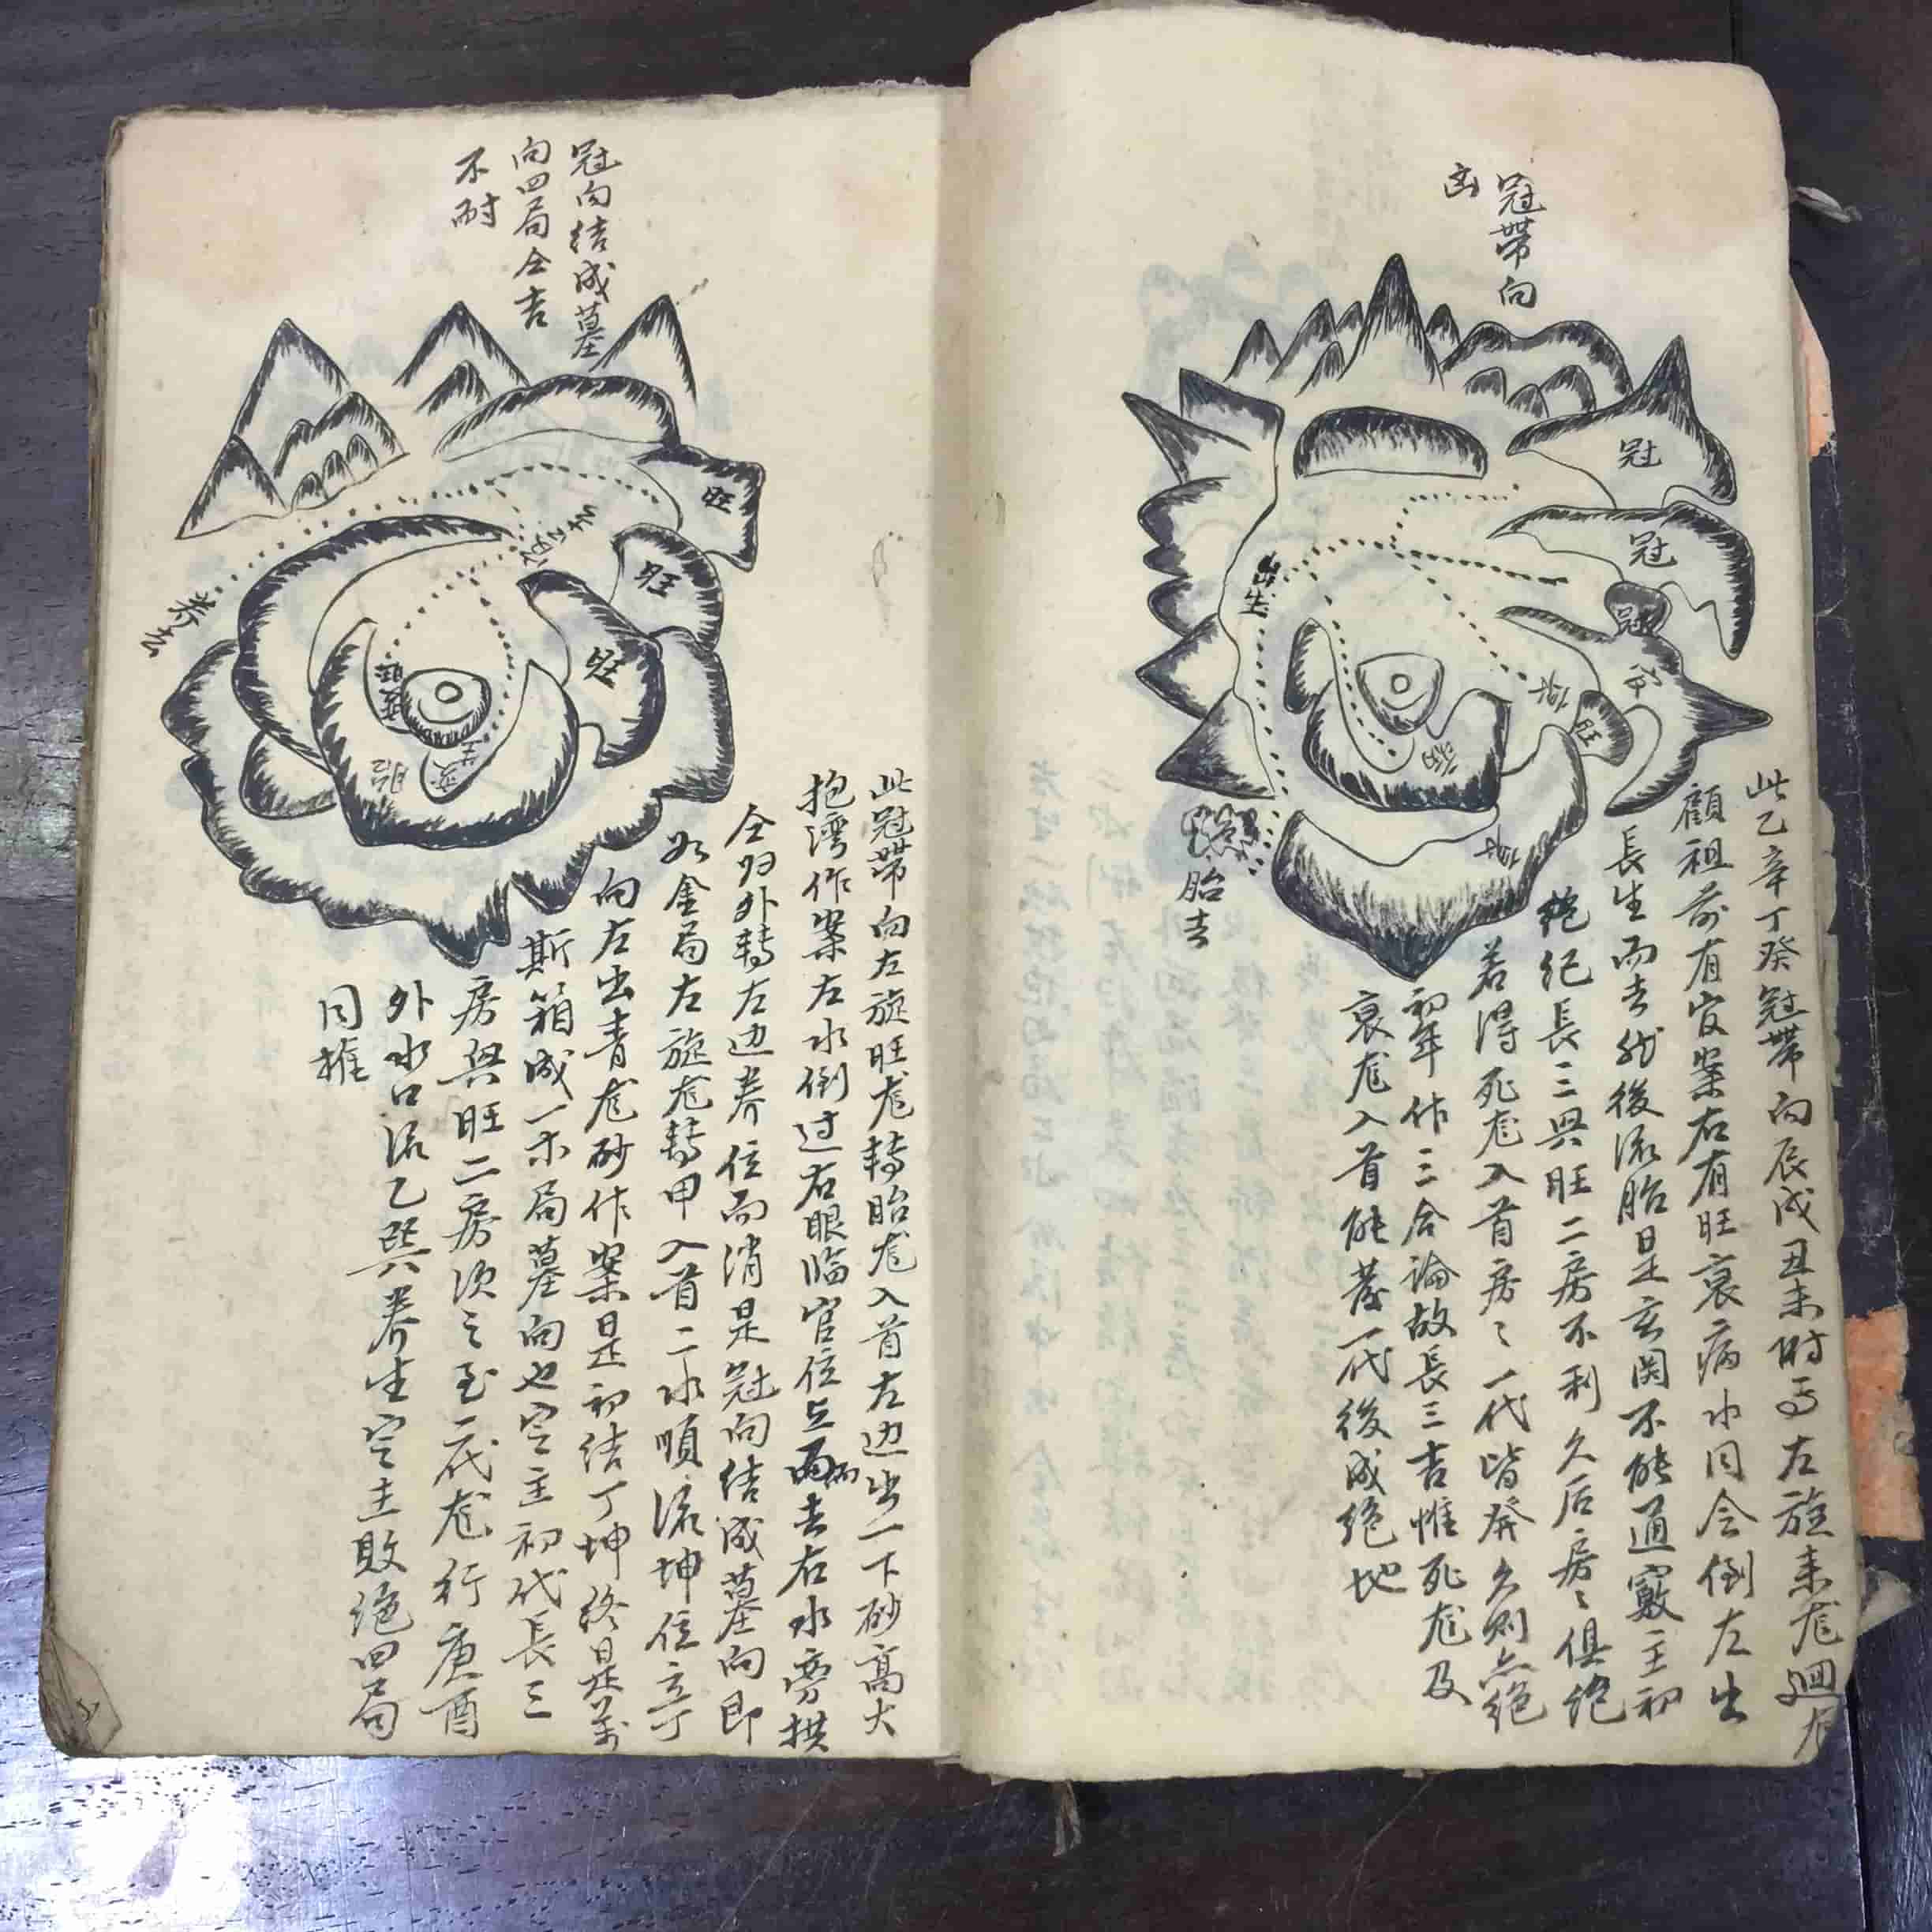 冠帶向
凶
冠
冠
冠
旺
出生
胎去
此乙辛丁癸冠帶向辰戌丑未時局左旋来尨迴左
顧祖前有官案右有旺衰病水同会倒左出
長生而去然後流胎是玄関不能通竅主初
絶纪長三與旺二房不利久后房〻俱绝
若得死尨入首房〻一代皆發久则点绝
初年作三合論故長三吉惟死尨及
衰尨入首能發一代後成绝地
冠向结成墓
向四局仝吉
不耐
旺
旺
旺
养去
胎
此冠帶向左旋旺尨轉胎尨入首左边出一下砂高大
抱湾作案左水倒过右眼临官位上而去右水旁拱
仝归外轉左边养位而消是冠向结成墓向即
如金局左旋尨轉甲入首二水順流坤位立丁
向左出青尨砂作案是初结丁坤终是萬
斯箱成一木局墓向也定主初代長三
房與旺二房次之至二代尨行庚酉
外水口流乙巽养生定主敗绝四局
同推